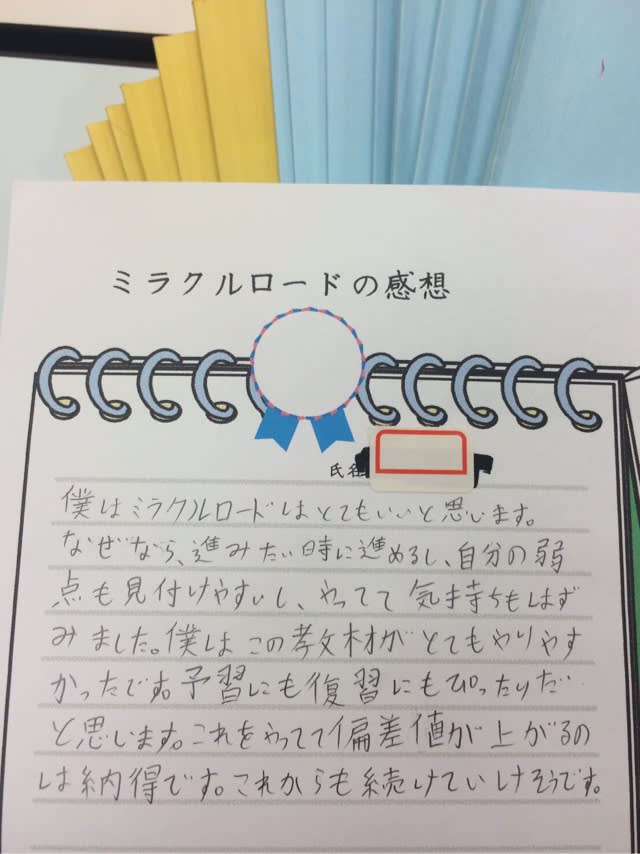 ミラクルロードの感想
氏名
僕はミラクルロードはとてもいいと思います。
なぜなら、進みたい時に進めるし、自分の弱
点も見付けやすいし、やってて気持ちもはず
みました。僕はこの教材がとてもやりやす
かったです。予習にも復習にもぴったりだ
と思います。これをやってて偏差値が上がるの
は納得です。これからも続けていけそうです。